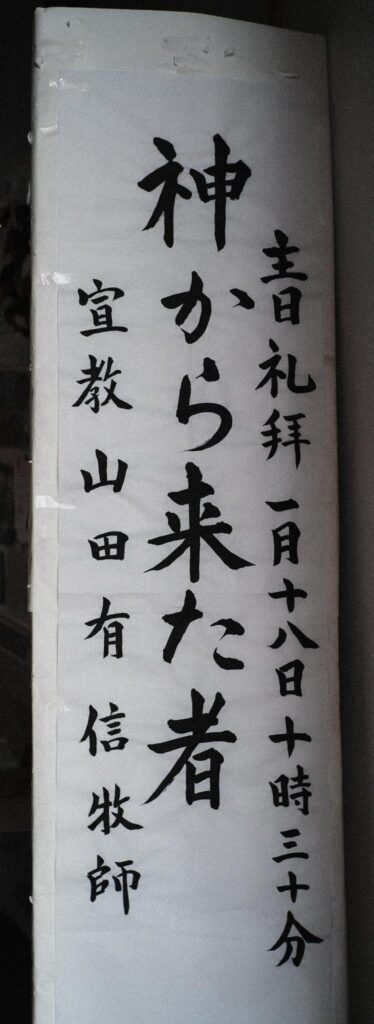 主日礼拝 一月十八日十時三十分
神から来た者
宣教 山田有信牧師